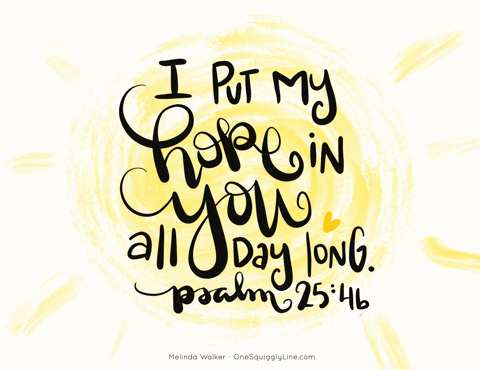 I PUT MY
hope iN
you
all Day loNG.
psalm 25:4b
Melinda Walker - OneSquigglyLine.com